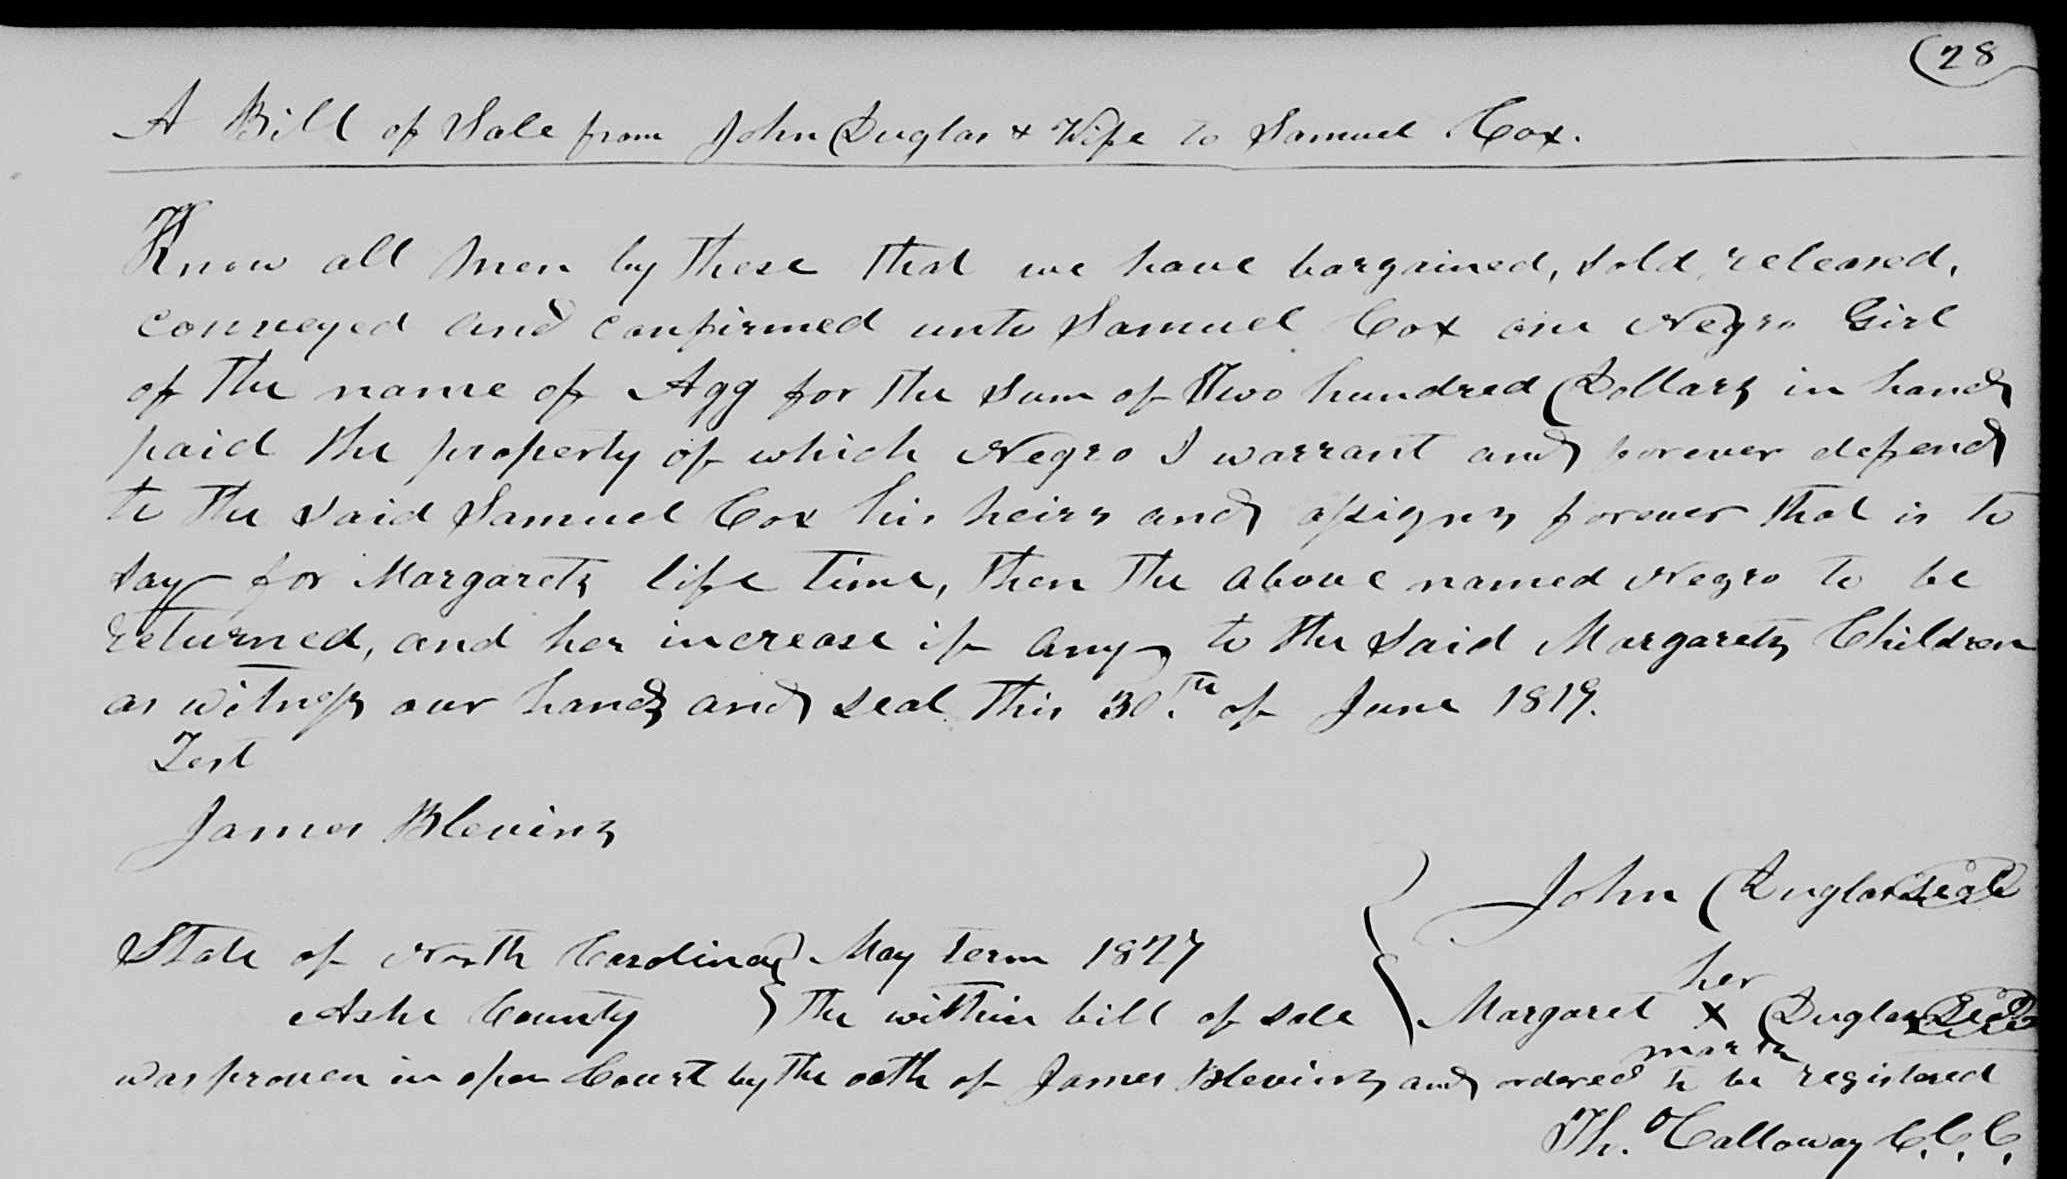 (28
A Bill of Sale from John Duglas & Wife to Samuel Cox.
Know all men by these that we have bargained, sold, released,
conveyed and confirmed unto Samuel Cox one Negro Girl
of the name of Agg for the sum of Two hundred Dollars in hand
paid the property of which Negro I warrant and forever defend
to the said Samuel Cox his heirs and assigns forever that is to
say for Margarets life time, then the above named Negro to be
returned, and her increase if any to the said Margarets Children
as witness our hands and seal this 30.th of June 1819.
Test
James Blevins
John Duglas Seal
State of North Carolina } May term 1827
her
Ashe County } the within bill of sale
Margaret X Duglas Seal
mark
was proven in open Court by the oath of James Blevins and ordered to be registered
Th. Calloway C.C.C.